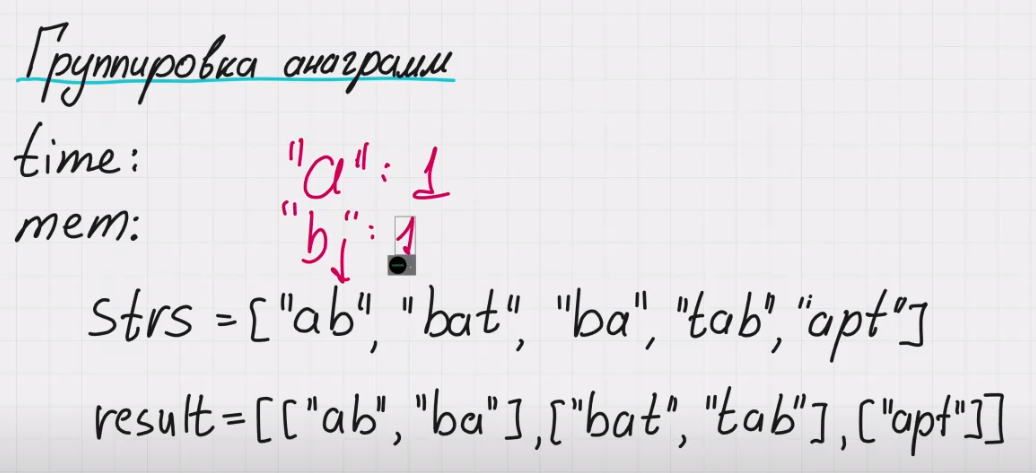 Группировка анаграмм
time:
"a": 1
mem:
"b": 1
strs = ["ab", "bat", "ba", "tab", "apt"]
result = [["ab", "ba"], ["bat", "tab"], ["apt"]]